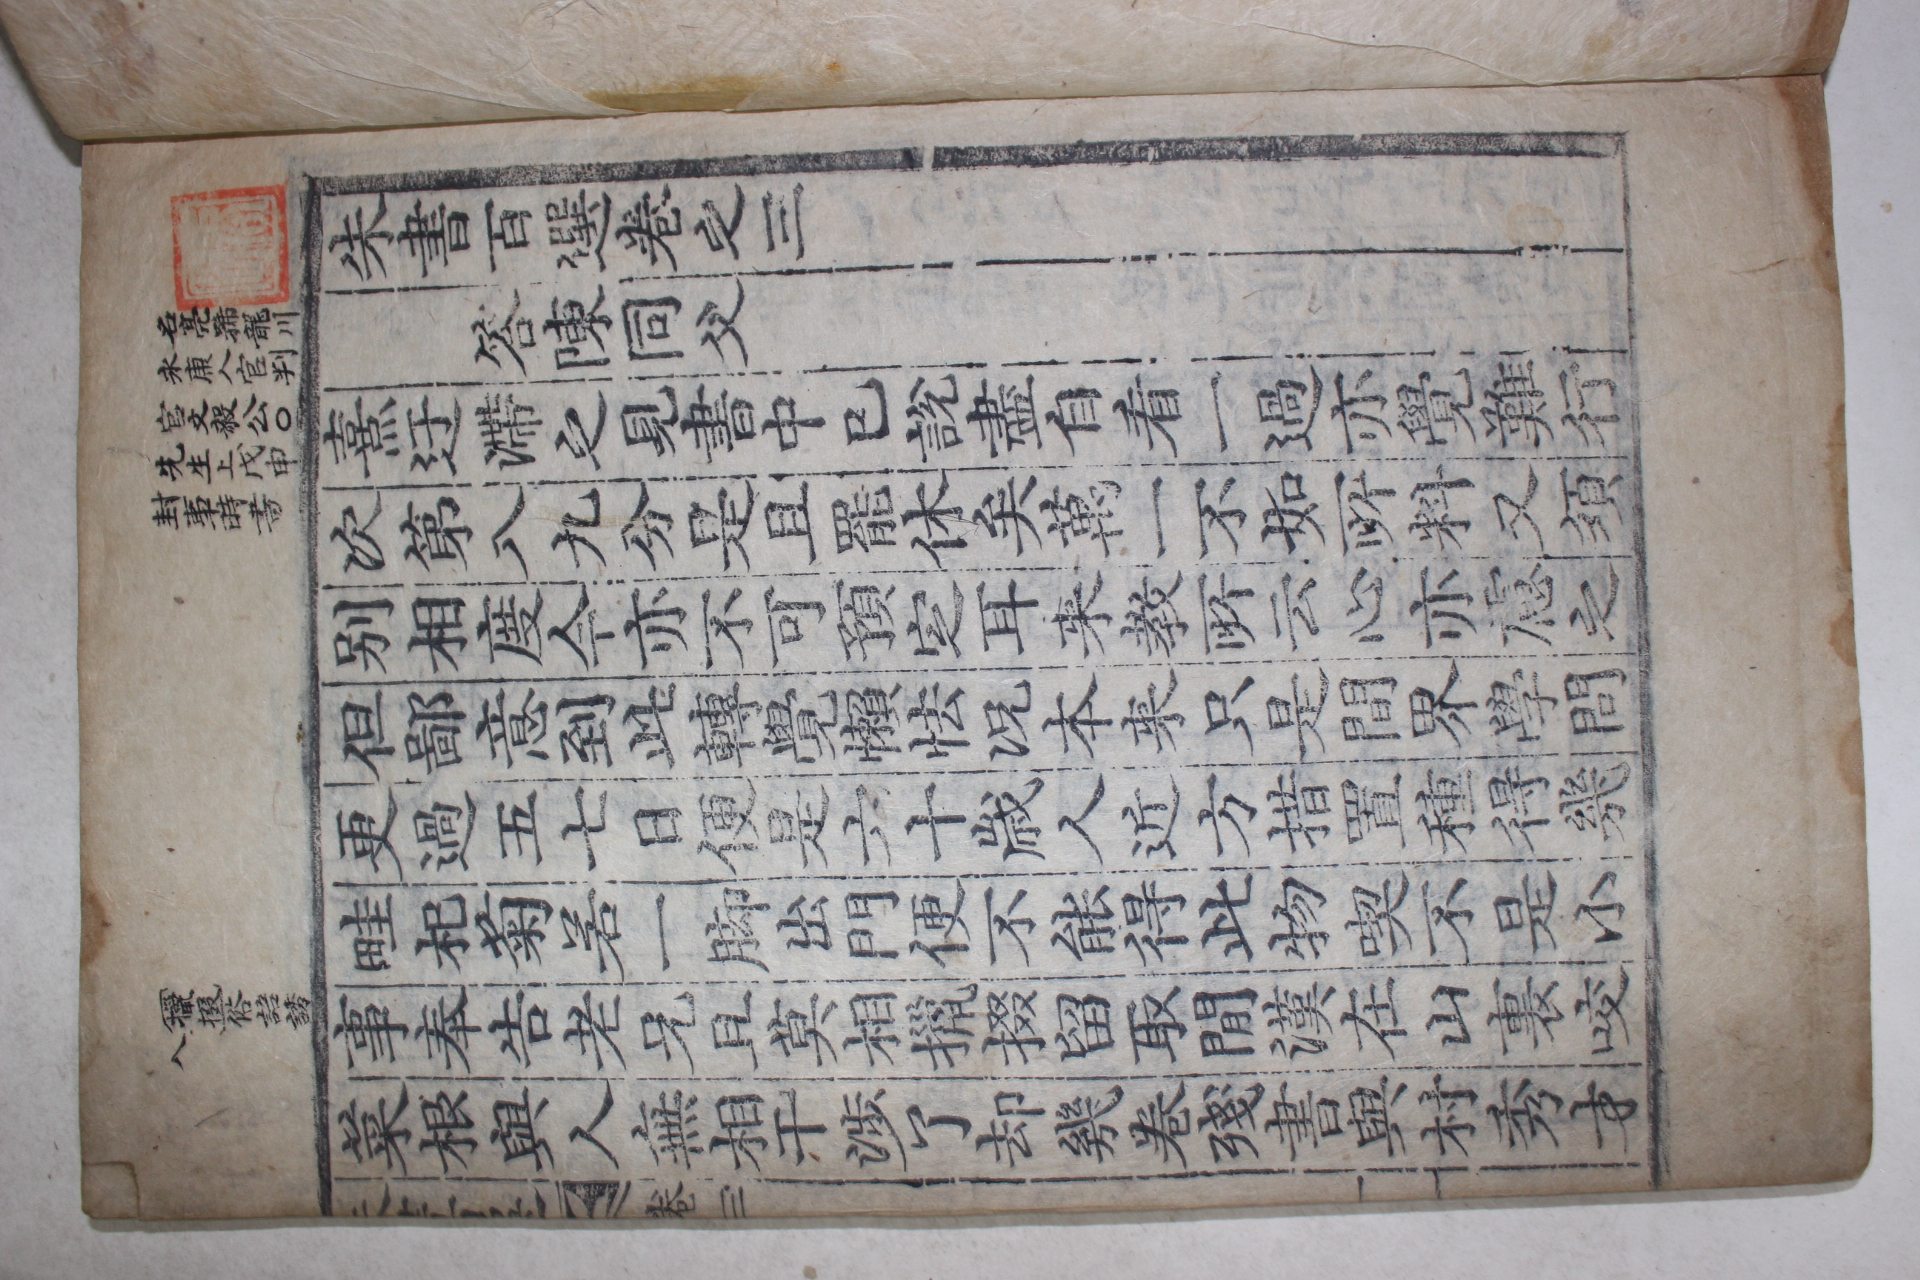 名亮號龍川
永康人官判
官文毅公〇
先生上戊申
封事時書
朱書百選卷之三
答陳同父
熹迂滯之見書中已說盡自看一過亦覺難行
次第八九分是且罷休矣萬一不如所料又須
别相度今亦不可預定耳来教所云心亦慮之
但鄙意到此轉覺懶怯况本来只是間界學問
更過五七日便是六十歲人近方措置種得幾
畦杞菊若一脚出門便不能得此物喫不是小
擸掇俗語誘
人
事奉告老兄且莫相擸掇留取閒漢在山裏咬
菜根與人無相干涉了却幾卷殘書與村秀才
卷三